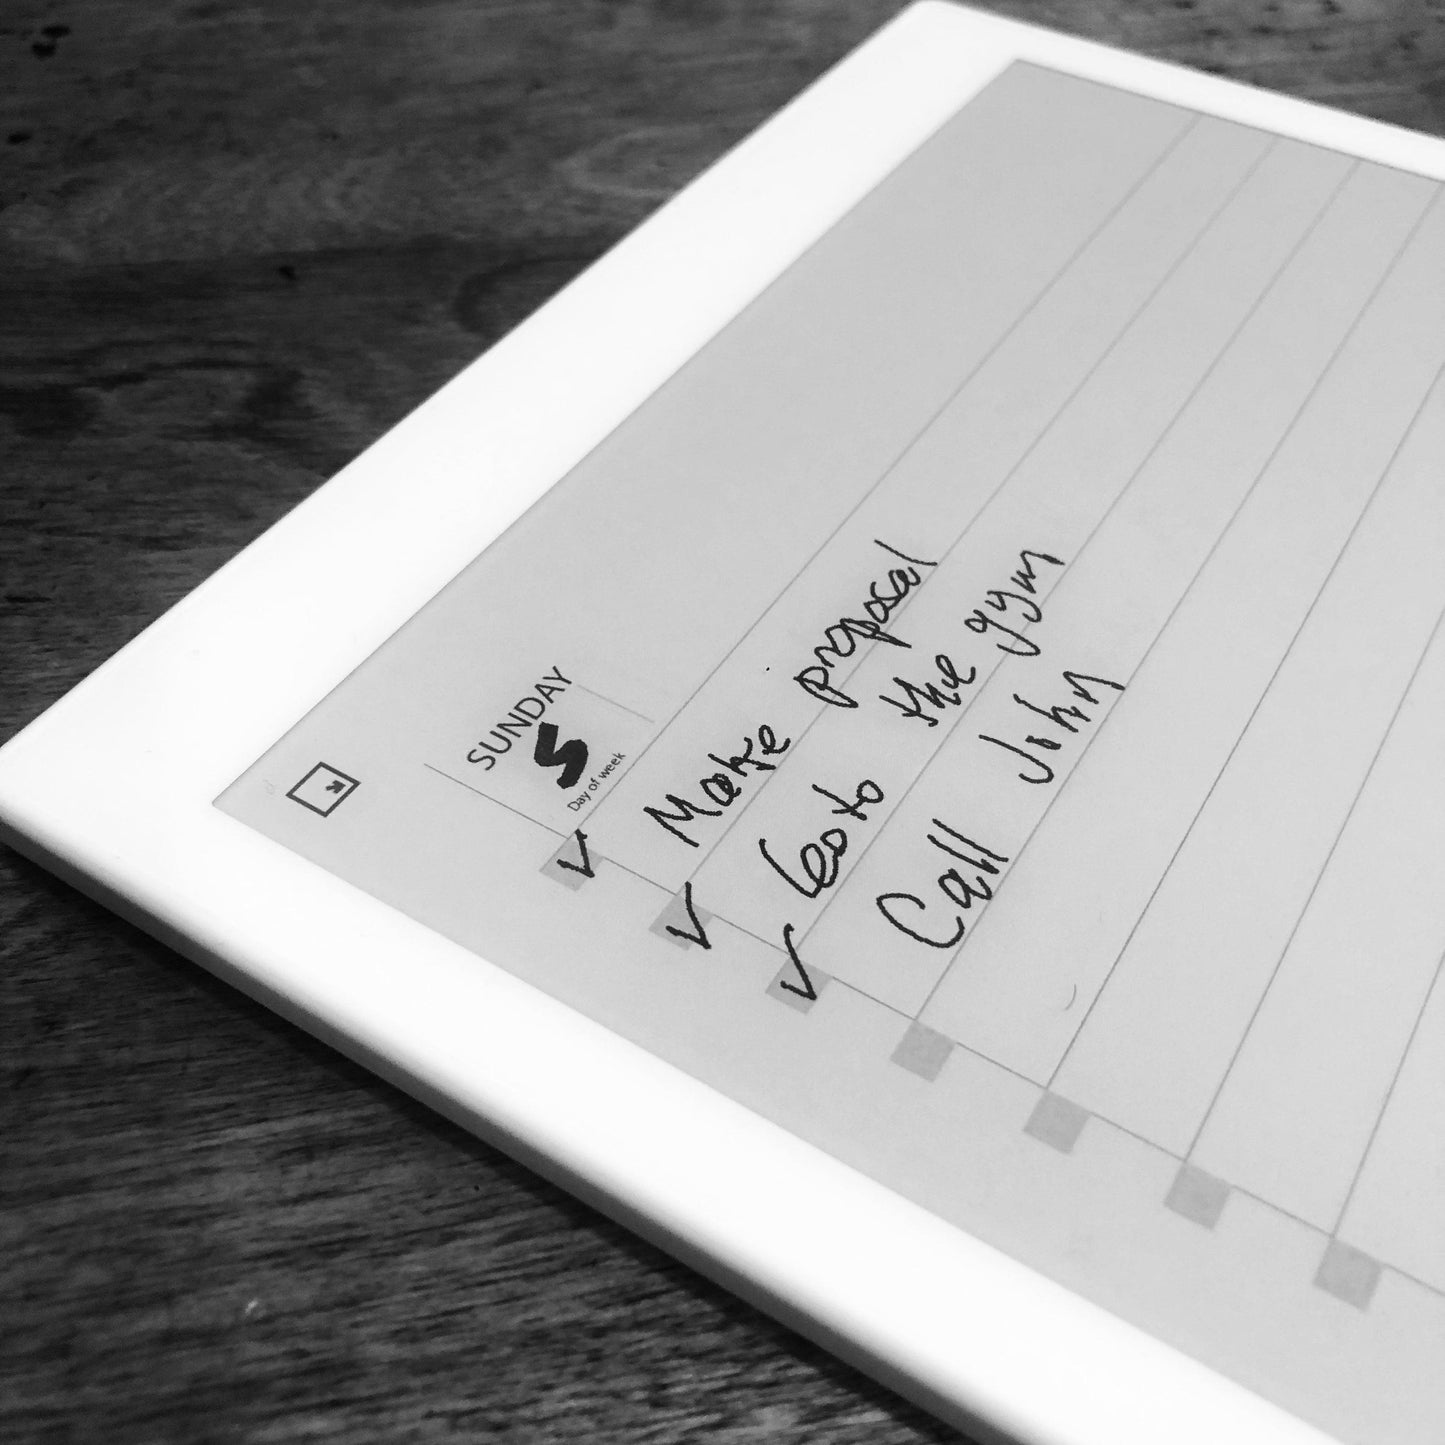 SUNDAY
5
Day of week
✓ Make proposal
✓ Go to the gym
✓ Call John